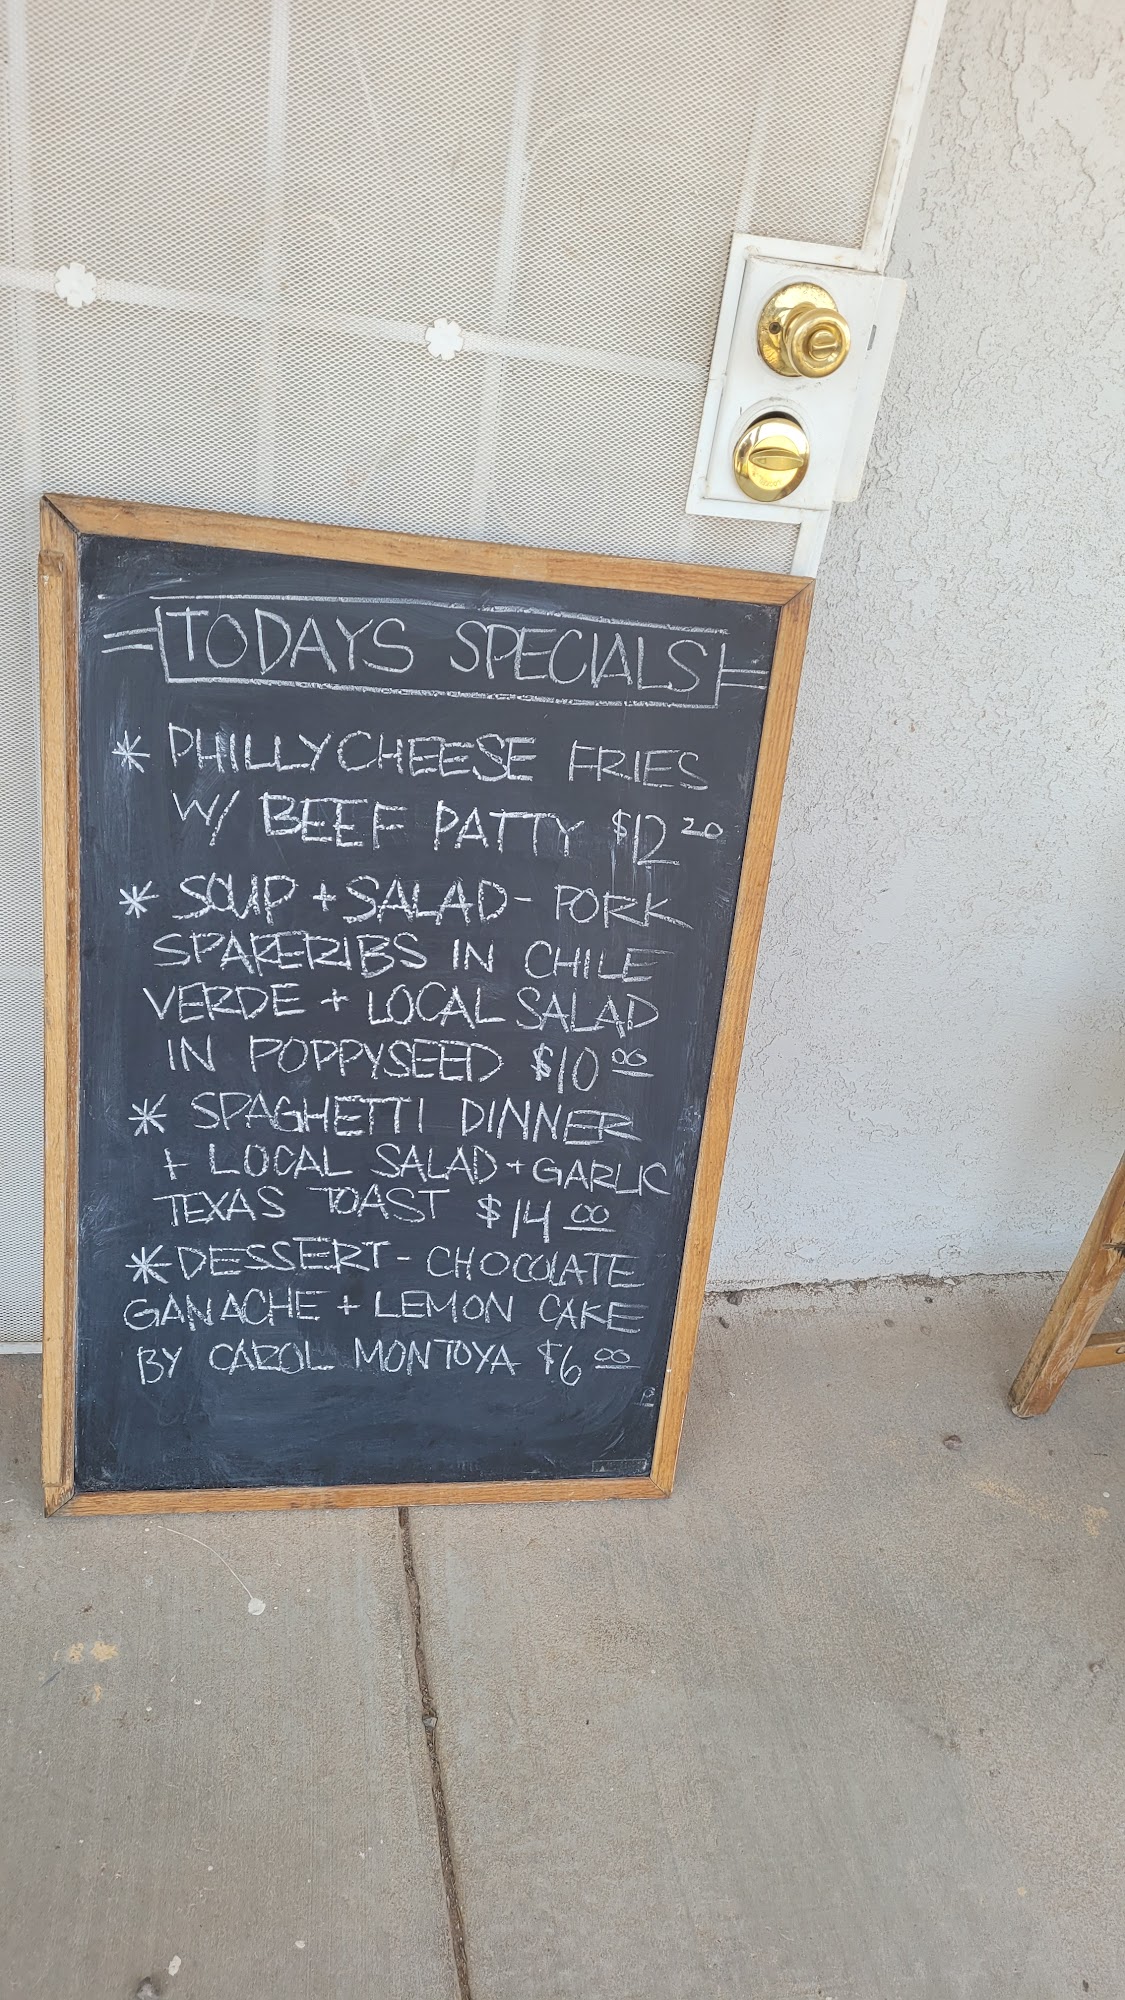 TODAYS SPECIALS
* PHILLYCHEESE FRIES
W/ BEEF PATTY $12 20
* SOUP + SALAD - PORK
SPARERIBS IN CHILE
VERDE + LOCAL SALAD
IN POPPYSEED $10 18
* SPAGHETTI DINNER
+ LOCAL SALAD + GARLIC
TEXAS TOAST $14 00
* DESSERT - CHOCOLATE
GANACHE + LEMON CAKE
BY CAROL MONTOYA $6 00